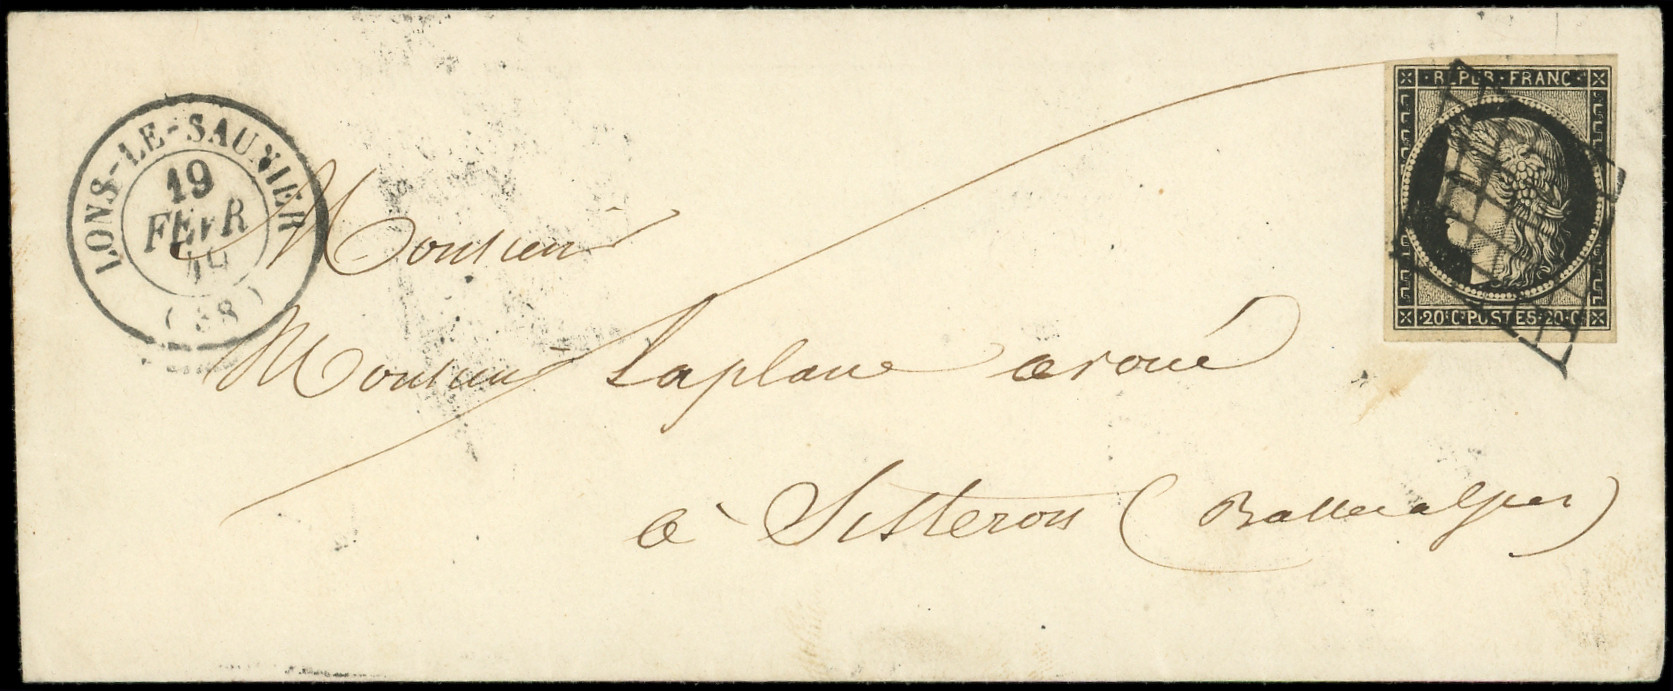 LONS-LE-SAUNIER
19
FEVR
49
(38)
REPUB·FRANC
20·C·POSTES·20·C
Monsieur
Monsieur Laplane avoué
à Sisteron (Basses alpes)